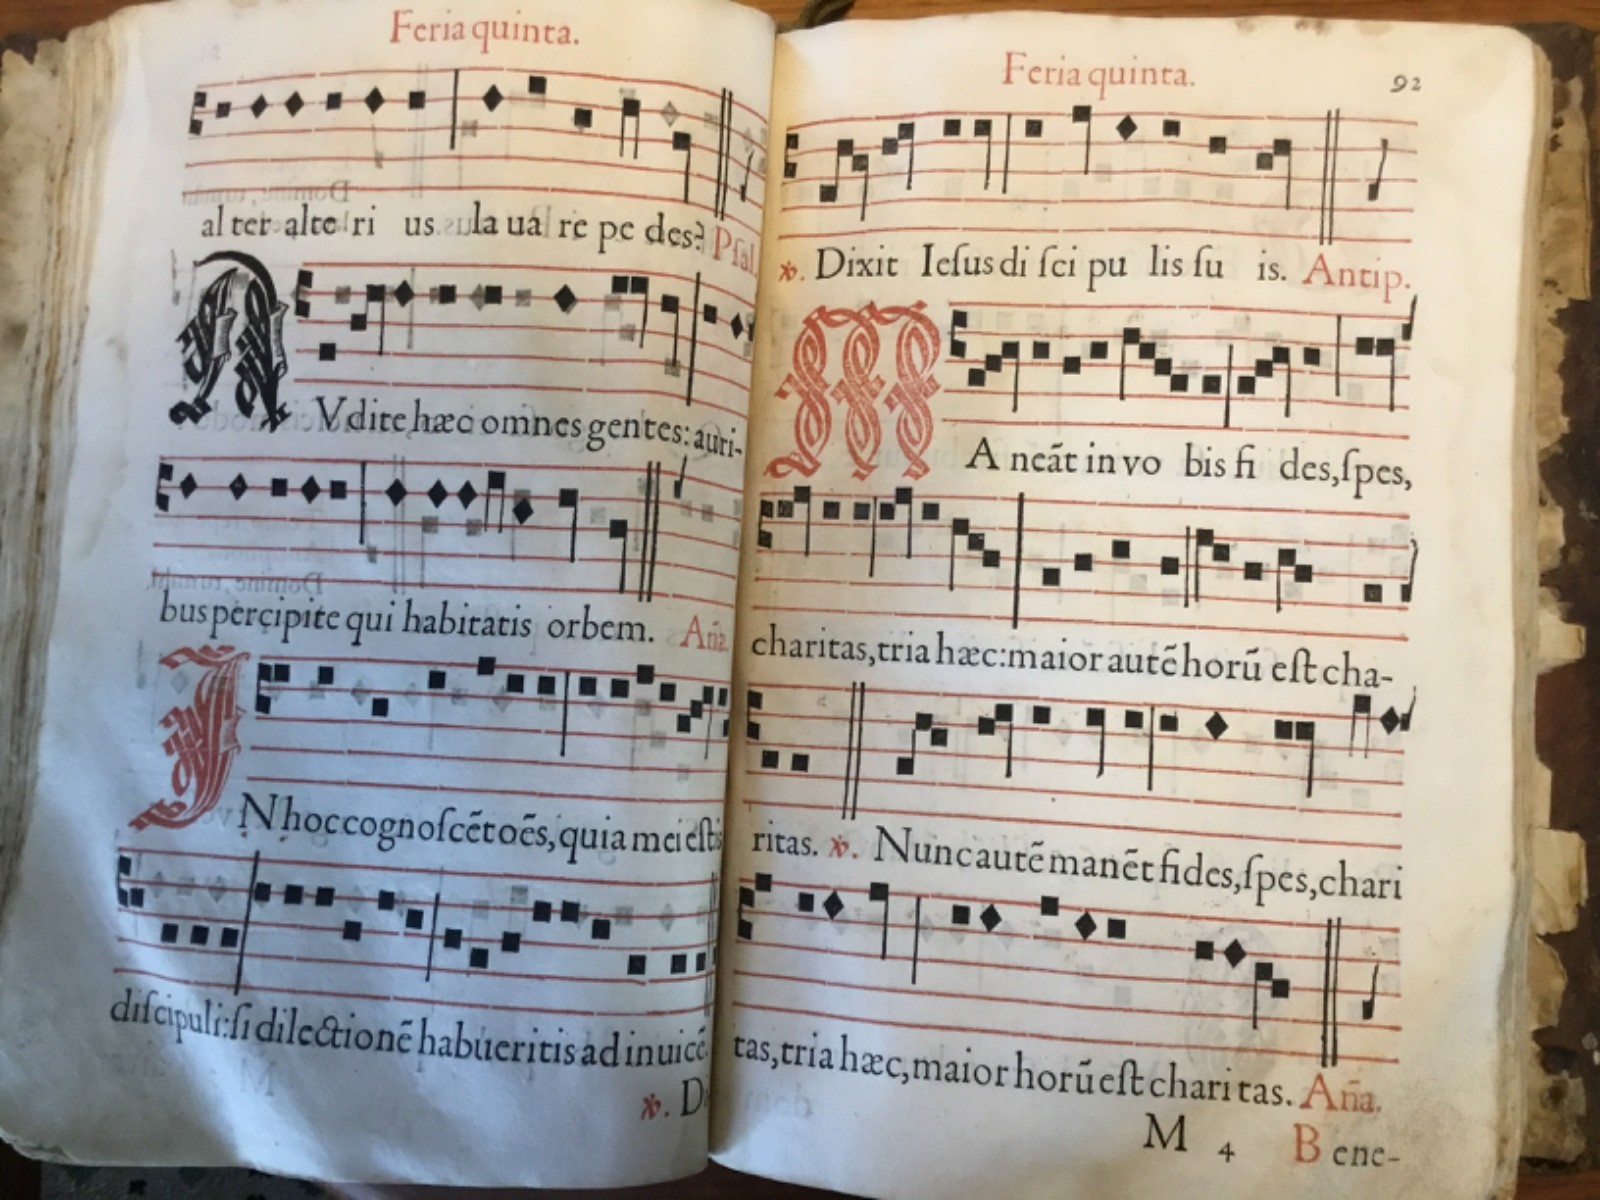 Feria quinta.
al ter alte ri us la ua re pe des? Psal.
AVdite hæc omnes gentes: auri-
bus percipite qui habitatis orbem. Aña.
IN hoc cognoscēt oēs, quia mei estis
discipuli: si dilectionē habueritis ad inuicē.
℣. D
Feria quinta. 92
℣. Dixit Iesus di sci pu lis su is. Antip.
MAneāt in vo bis fi des, spes,
charitas, tria hæc: maior autē horū est cha-
ritas. ℣. Nunc autē manēt fides, spes, chari
tas, tria hæc, maior horū est chari tas. Aña.
M 4 Bene-